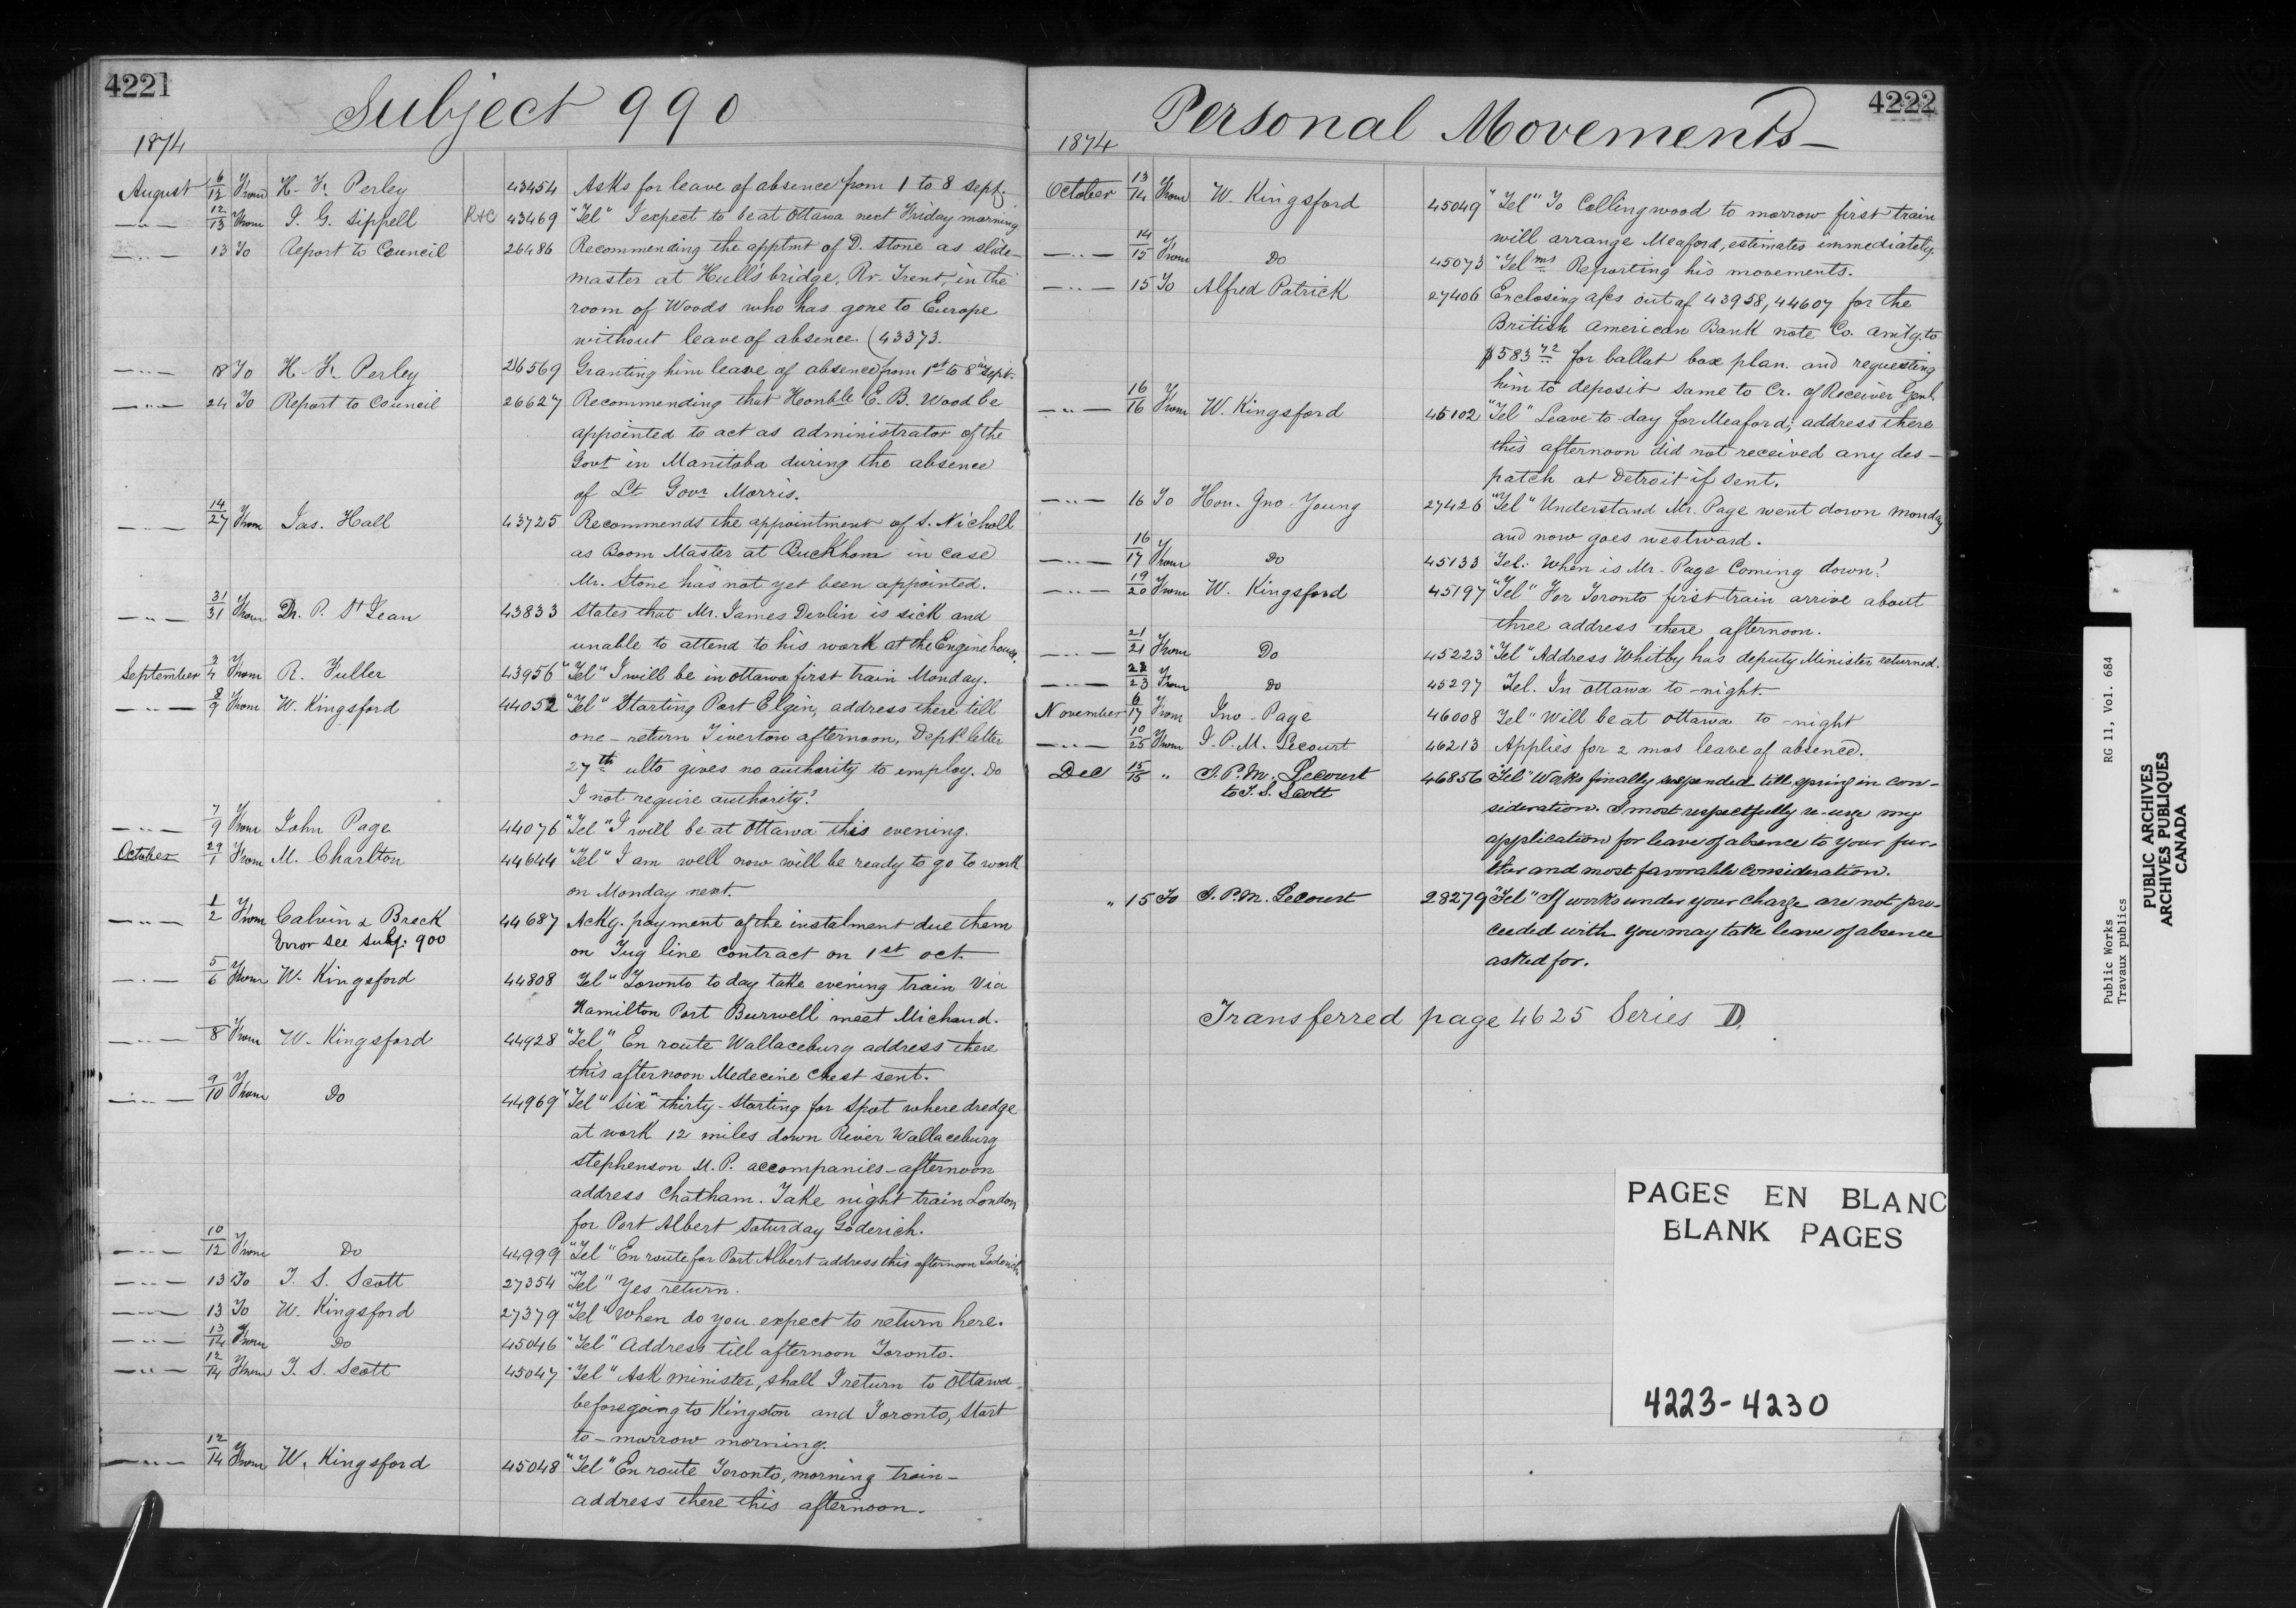 4221
Subject 990
1874
August 6/12 From H. F. Perley 43454 Asks for leave of absence from 1 to 8 Sept.
—"— 12/13 From J. G. Sippell R+C 43469 "Tel" I expect to be at Ottawa next Friday morning
—"— 13 To Report to Council 26486 Recommending the apptmt of D. Stone as slide-
master at Hull's bridge, Rr. Trent, in the
room of Woods who has gone to Europe
without leave of absence. (43373.
—"— 18 To H. F. Perley 26569 Granting him leave of absence from 1st to 8th Sept.
—"— 24 To Report to Council 26627 Recommending that Honble E. B. Wood be
appointed to act as administrator of the
Govt in Manitoba during the absence
of Lt Govr Morris.
—"— 14/27 From Jas. Hall 43725 Recommends the appointment of S. Nicholl
as Boom Master at Buckhorn in case
Mr. Stone has not yet been appointed.
—"— 31/31 From Dr. P. St Jean 43833 States that Mr. James Devlin is sick and
unable to attend to his work at the Engine house.
September 3/4 From R. Fuller 43956 "Tel" I will be in Ottawa first train Monday.
—"— 8/9 From W. Kingsford 44052 "Tel" Starting Port Elgin, address there till
one - return Tiverton afternoon, Dept letter
27th ulto gives no authority to employ. Do
I not require authority?
—"— 7/9 From John Page 44076 "Tel" I will be at Ottawa this evening.
October 29/1 From M. Charlton 44644 "Tel" I am well now will be ready to go to work
on Monday next.
—"— 1/2 From Calvin & Breck 44687 Ackg. payment of the instalment due them
Error see subj: 900 on Tug line contract on 1st Oct.
—"— 5/6 From W. Kingsford 44808 Tel" Toronto to day take evening train via
Hamilton Port Burwell meet Michaud.
—"— 8 From W. Kingsford 44928 "Tel" En route Wallaceburg address there
this afternoon Medecine Chest sent.
—"— 9/10 From Do 44969 "Tel" Six" thirty - starting for Spot where dredge
at work 12 miles down River Wallaceburg
Stephenson M. P. accompanies - afternoon
address Chatham. Take night train London
for Port Albert Saturday Goderich.
—"— 10/12 From Do 44999 "Tel" En route for Port Albert address this afternoon Goderich
—"— 13 To T. S. Scott 27354 "Tel" Yes return.
—"— 13 To W. Kingsford 27379 "Tel" When do you expect to return here.
—"— 13/14 From Do 45046 "Tel" Address till afternoon Toronto.
—"— 12/14 From T. S. Scott 45047 "Tel" Ask minister, shall I return to Ottawa
before going to Kingston and Toronto, Start
to-morrow morning.
—"— 12/14 From W. Kingsford 45048 "Tel" En route Toronto, morning train -
address there this afternoon.
4222
Personal Movements—
1874
October 13/14 From W. Kingsford 45049 "Tel" To Collingwood to morrow first train
will arrange Meaford, estimates immediately.
—"— 14/15 From Do 45073 "Telms Reporting his movements.
—"— 15 To Alfred Patrick 27406 Enclosing a/cs out of 43958, 44607 for the
British American Bank note Co. amtg. to
$583 72 for ballot box plan. and requesting
him to deposit same to Cr. of Receiver Genl.
—"— 16/16 From W. Kingsford 45102 "Tel" Leave to-day for Meaford; address there
this afternoon did not received any des-
patch at Detroit if sent.
—"— 16 To Hon. Jno. Young 27426 "Tel" Understand Mr. Page went down Monday
and now goes westward.
—"— 16/17 From Do 45133 Tel: When is Mr. Page Coming down?
—"— 19/20 From W. Kingsford 45197 "Tel" For Toronto first train arrive about
three address there afternoon.
—"— 21/21 From Do 45223 "Tel" Address Whitby has deputy Minister returned.
—"— 22/23 From Do 45297 Tel. In Ottawa to-night.—
November 6/17 From Jno. Page 46008 Tel" Will be at Ottawa to-night
—"— 10/25 From J. P. M. Lecourt 46213 Applies for 2 mos leave of absence.
Dec 15/15 " J. P. M. Lecourt 46856 "Tel" Works finally suspended till spring in con-
to T. S. Scott sideration. I most respectfully re-urge my
application for leave of absence to your fur-
ther and most favorable consideration.
" 15 To J. P. M. Lecourt 28279 "Tel" If works under your charge are not pro-
ceeded with you may take leave of absence
asked for.
Transferred page 4625 Series D.
PAGES EN BLANC
BLANK PAGES
4223-4230
Public Works RG 11, Vol. 684
Travaux publics
PUBLIC ARCHIVES
ARCHIVES PUBLIQUES
CANADA